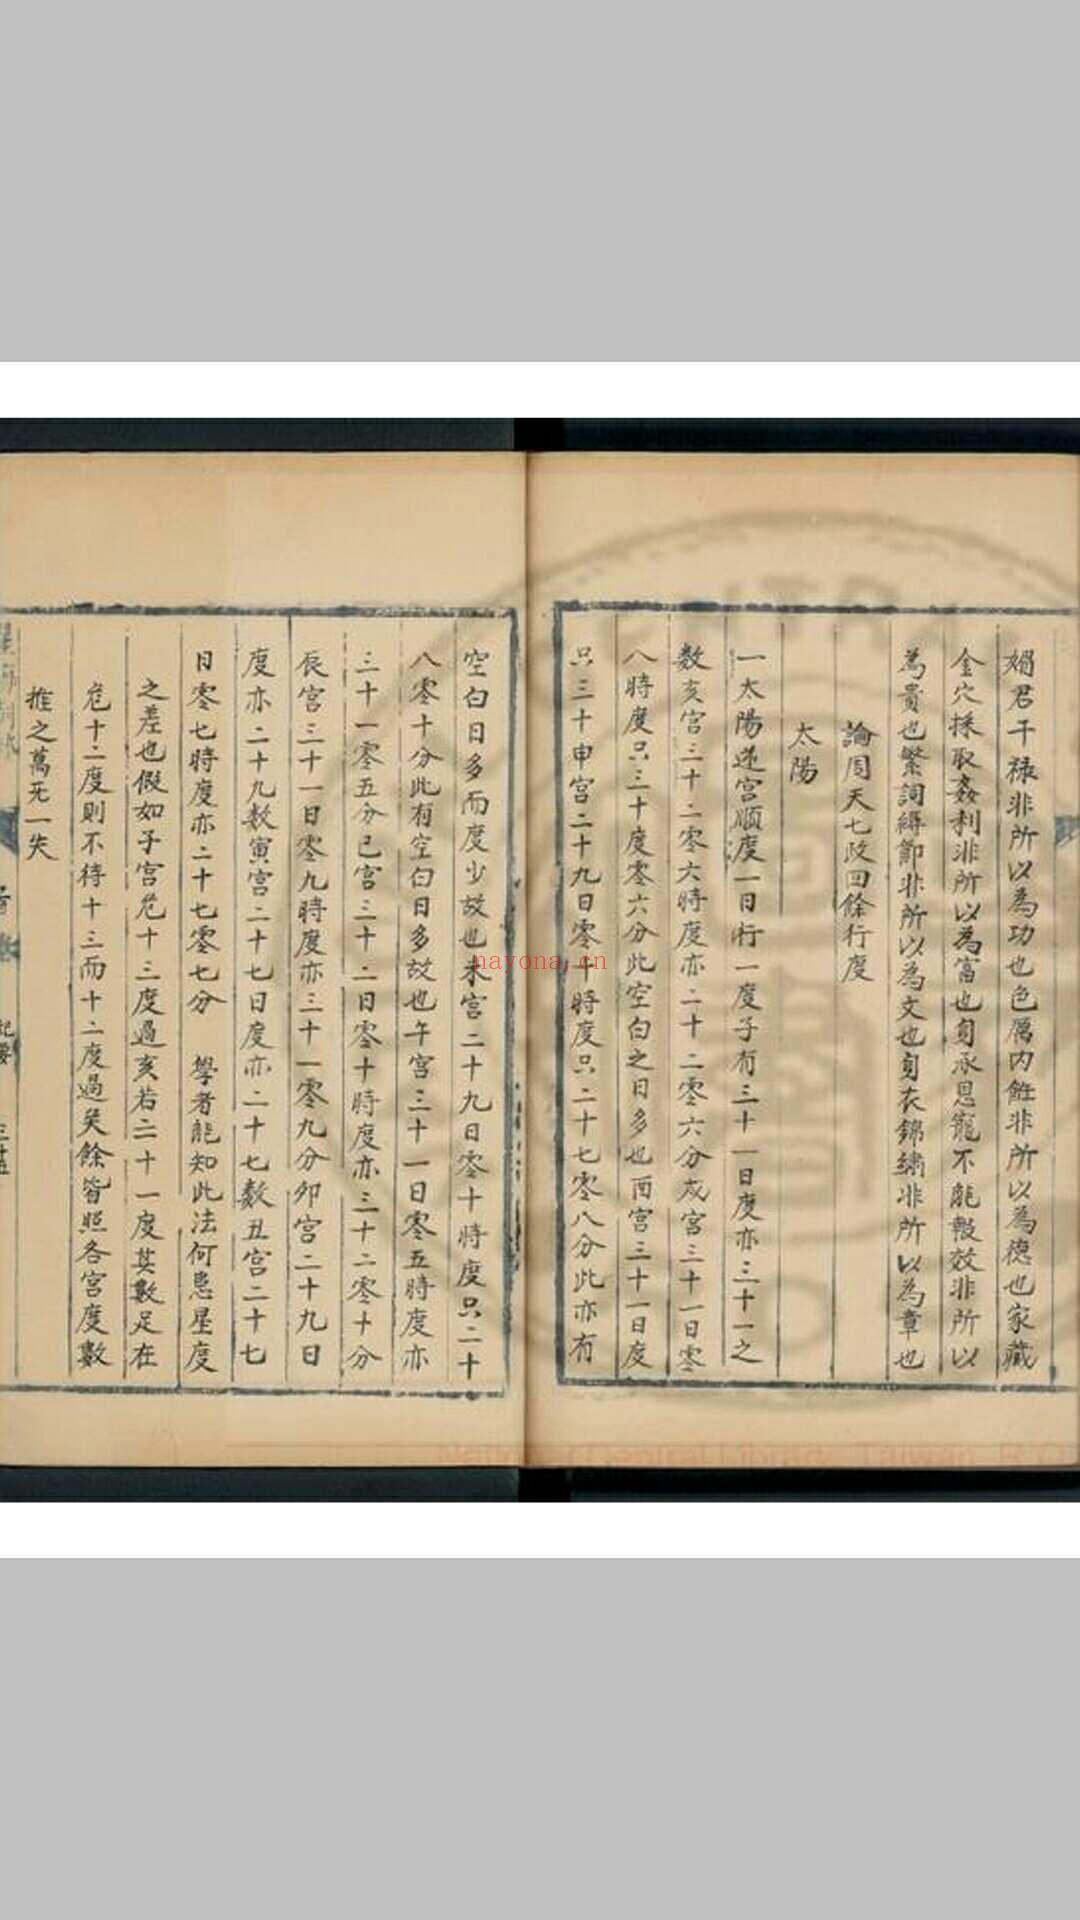 媚君干祿非所以為功也色厲内餒非所以為德也家藏
金穴採取姦利非所以為富也身承恩寵不能報效非所以
為貴也繁詞縟節非所以為文也身衣錦繡非所以為章也
論周天七政四餘行度
太陽
一太陽逐宮順度一日行一度子有三十一日度亦三十一之
數亥宮三十二零六時度亦三十二零六分戌宮三十一日零
八時度只三十度零六分此空白之日多也酉宮三十一日度
只三十申宮二十九日零十時度只二十七零八分此亦有
空白日多而度少故也未宮二十九日零十時度只二十
八零十分此有空白日多故也午宮三十一日零五時度亦
三十一零五分巳宮三十二日零十時度亦三十二零十分
辰宮三十一日零九時度亦三十一零九分卯宮二十九日
度亦二十九數寅宮二十七日度亦二十七數丑宮二十七
日零七時度亦二十七零七分　學者能知此法何患星度
之差也假如子宮危十三度過亥若二十一度其數足在
危十二度則不待十三而十二度過矣餘皆照各宮度數
推之萬无一失
nayona.cn